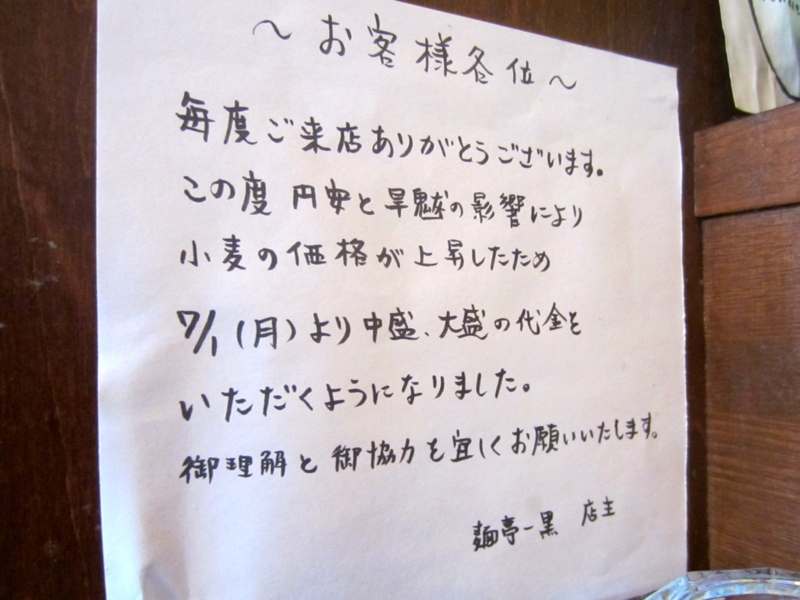 ～お客様各位～
毎度ご来店ありがとうございます。
この度 円安と旱魃の影響により
小麦の価格が上昇したため
7/1(月)より中盛、大盛の代金を
いただくようになりました。
御理解と御協力を宜しくお願いいたします。
麺亭一黒 店主